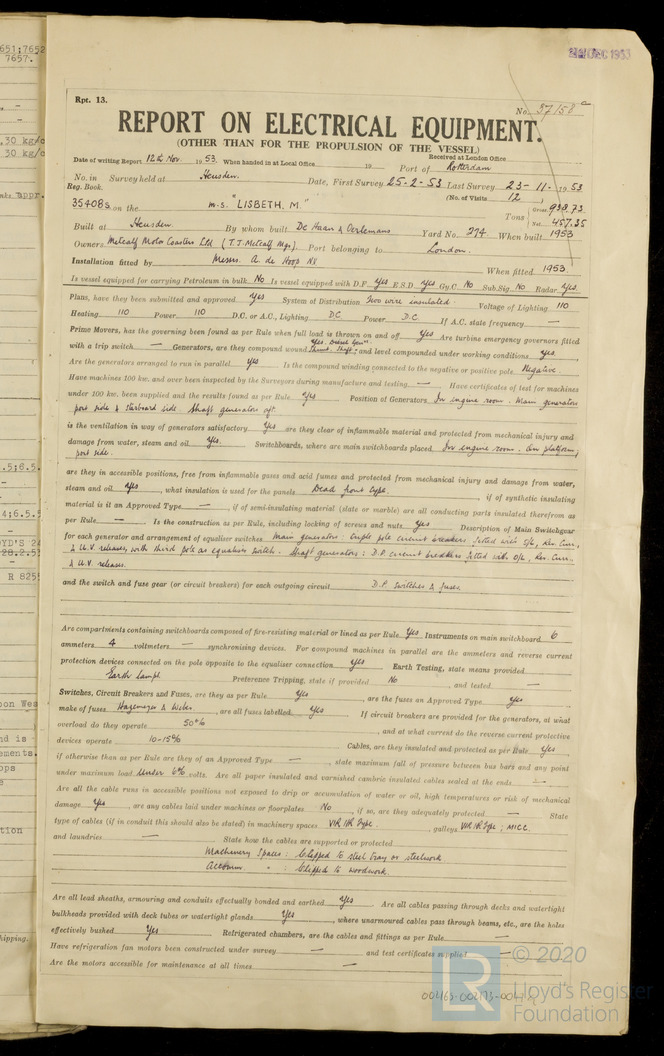 651;7652
7657.
.30 kg/c
30 kg/
appr.
DEC 1953
Rpt. 13.
No. 37158 c
REPORT ON ELECTRICAL EQUIPMENT.
(OTHER THAN FOR THE PROPULSION OF THE VESSEL)
Received at London Office
Date of writing Report 12th Nov. 1953. When handed in at Local Office 19 Port of Rotterdam
No. in Survey held at Heusden. Date, First Survey 25-2-53 Last Survey 23-11-1953
Reg. Book. (No. of Visits 12 )
35408s on the M.S. "LISBETH, M." Tons { Gross 938.73 Net 457.35
Built at Heusden. By whom built De Haan & Oerlemans Yard No. 274 When built 1953
Owners Metcalf Motor Coasters Ltd (T.J. Metcalf Mgr.) Port belonging to London.
Installation fitted by Messrs. A. de Hoop NV When fitted 1953.
Is vessel equipped for carrying Petroleum in bulk No Is vessel equipped with D.F. Yes E.S.D. Yes Gy.C. No Sub.Sig. No Radar Yes.
Plans, have they been submitted and approved Yes System of Distribution Two wire insulated. Voltage of Lighting 110
Heating 110 Power 110 D.C. or A.C., Lighting DC Power D.C If A.C. state frequency —
Prime Movers, has the governing been found as per Rule when full load is thrown on and off Yes Are turbine emergency governors fitted
with a trip switch — Generators, are they compound wound Yes. Diesel Gen. Shunt. Shaft ; and level compounded under working conditions Yes
Are the generators arranged to run in parallel Yes Is the compound winding connected to the negative or positive pole Negative
Have machines 100 kw. and over been inspected by the Surveyors during manufacture and testing — Have certificates of test for machines
under 100 kw. been supplied and the results found as per Rule Yes Position of Generators In engine room. Main generators
port side & starboard side Shaft generator aft.
is the ventilation in way of generators satisfactory Yes are they clear of inflammable material and protected from mechanical injury and
damage from water, steam and oil Yes. Switchboards, where are main switchboards placed In engine room. On platform,
port side.
are they in accessible positions, free from inflammable gases and acid fumes and protected from mechanical injury and damage from water,
steam and oil Yes , what insulation is used for the panels Dead front type. , if of synthetic insulating
material is it an Approved Type — , if of semi-insulating material (slate or marble) are all conducting parts insulated therefrom as
per Rule — Is the construction as per Rule, including locking of screws and nuts Yes Description of Main Switchgear
for each generator and arrangement of equaliser switches Main generators: triple pole circuit breakers fitted with O/L, Rev. Curr.,
& U.V. releases, with third pole as equaliser switch. Shaft generators: D.P. circuit breakers fitted with O/L, Rev. Curr.
& U.V. releases.
and the switch and fuse gear (or circuit breakers) for each outgoing circuit D.P. switches & fuses.
Are compartments containing switchboards composed of fire-resisting material or lined as per Rule Yes Instruments on main switchboard 6
ammeters 4 voltmeters — synchronising devices. For compound machines in parallel are the ammeters and reverse current
protection devices connected on the pole opposite to the equaliser connection yes Earth Testing, state means provided
Earth Lamps Preference Tripping, state if provided No , and tested —
Switches, Circuit Breakers and Fuses, are they as per Rule Yes , are the fuses an Approved Type Yes
make of fuses Hazemeyer & Weber , are all fuses labelled Yes If circuit breakers are provided for the generators, at what
overload do they operate 50% , and at what current do the reverse current protective
devices operate 10-15% Cables, are they insulated and protected as per Rule Yes
if otherwise than as per Rule are they of an Approved Type — , state maximum fall of pressure between bus bars and any point
under maximum load Under 6% volts. Are all paper insulated and varnished cambric insulated cables sealed at the ends —
Are all the cable runs in accessible positions not exposed to drip or accumulation of water or oil, high temperatures or risk of mechanical
damage Yes , are any cables laid under machines or floorplates No , if so, are they adequately protected — State
type of cables (if in conduit this should also be stated) in machinery spaces VIR HR Type. , galleys VIR HR Type; MICC.
and laundries — State how the cables are supported or protected
Machinery Spaces: Clipped to steel tray or steelwork
Accomm. " : Clipped to woodwork.
Are all lead sheaths, armouring and conduits effectually bonded and earthed Yes Are all cables passing through decks and watertight
bulkheads provided with deck tubes or watertight glands Yes , where unarmoured cables pass through beams, etc., are the holes
effectively bushed Yes Refrigerated chambers, are the cables and fittings as per Rule —
Have refrigeration fan motors been constructed under survey — and test certificates supplied —
Are the motors accessible for maintenance at all times —
LR
© 2020
Lloyd's Register
Foundation